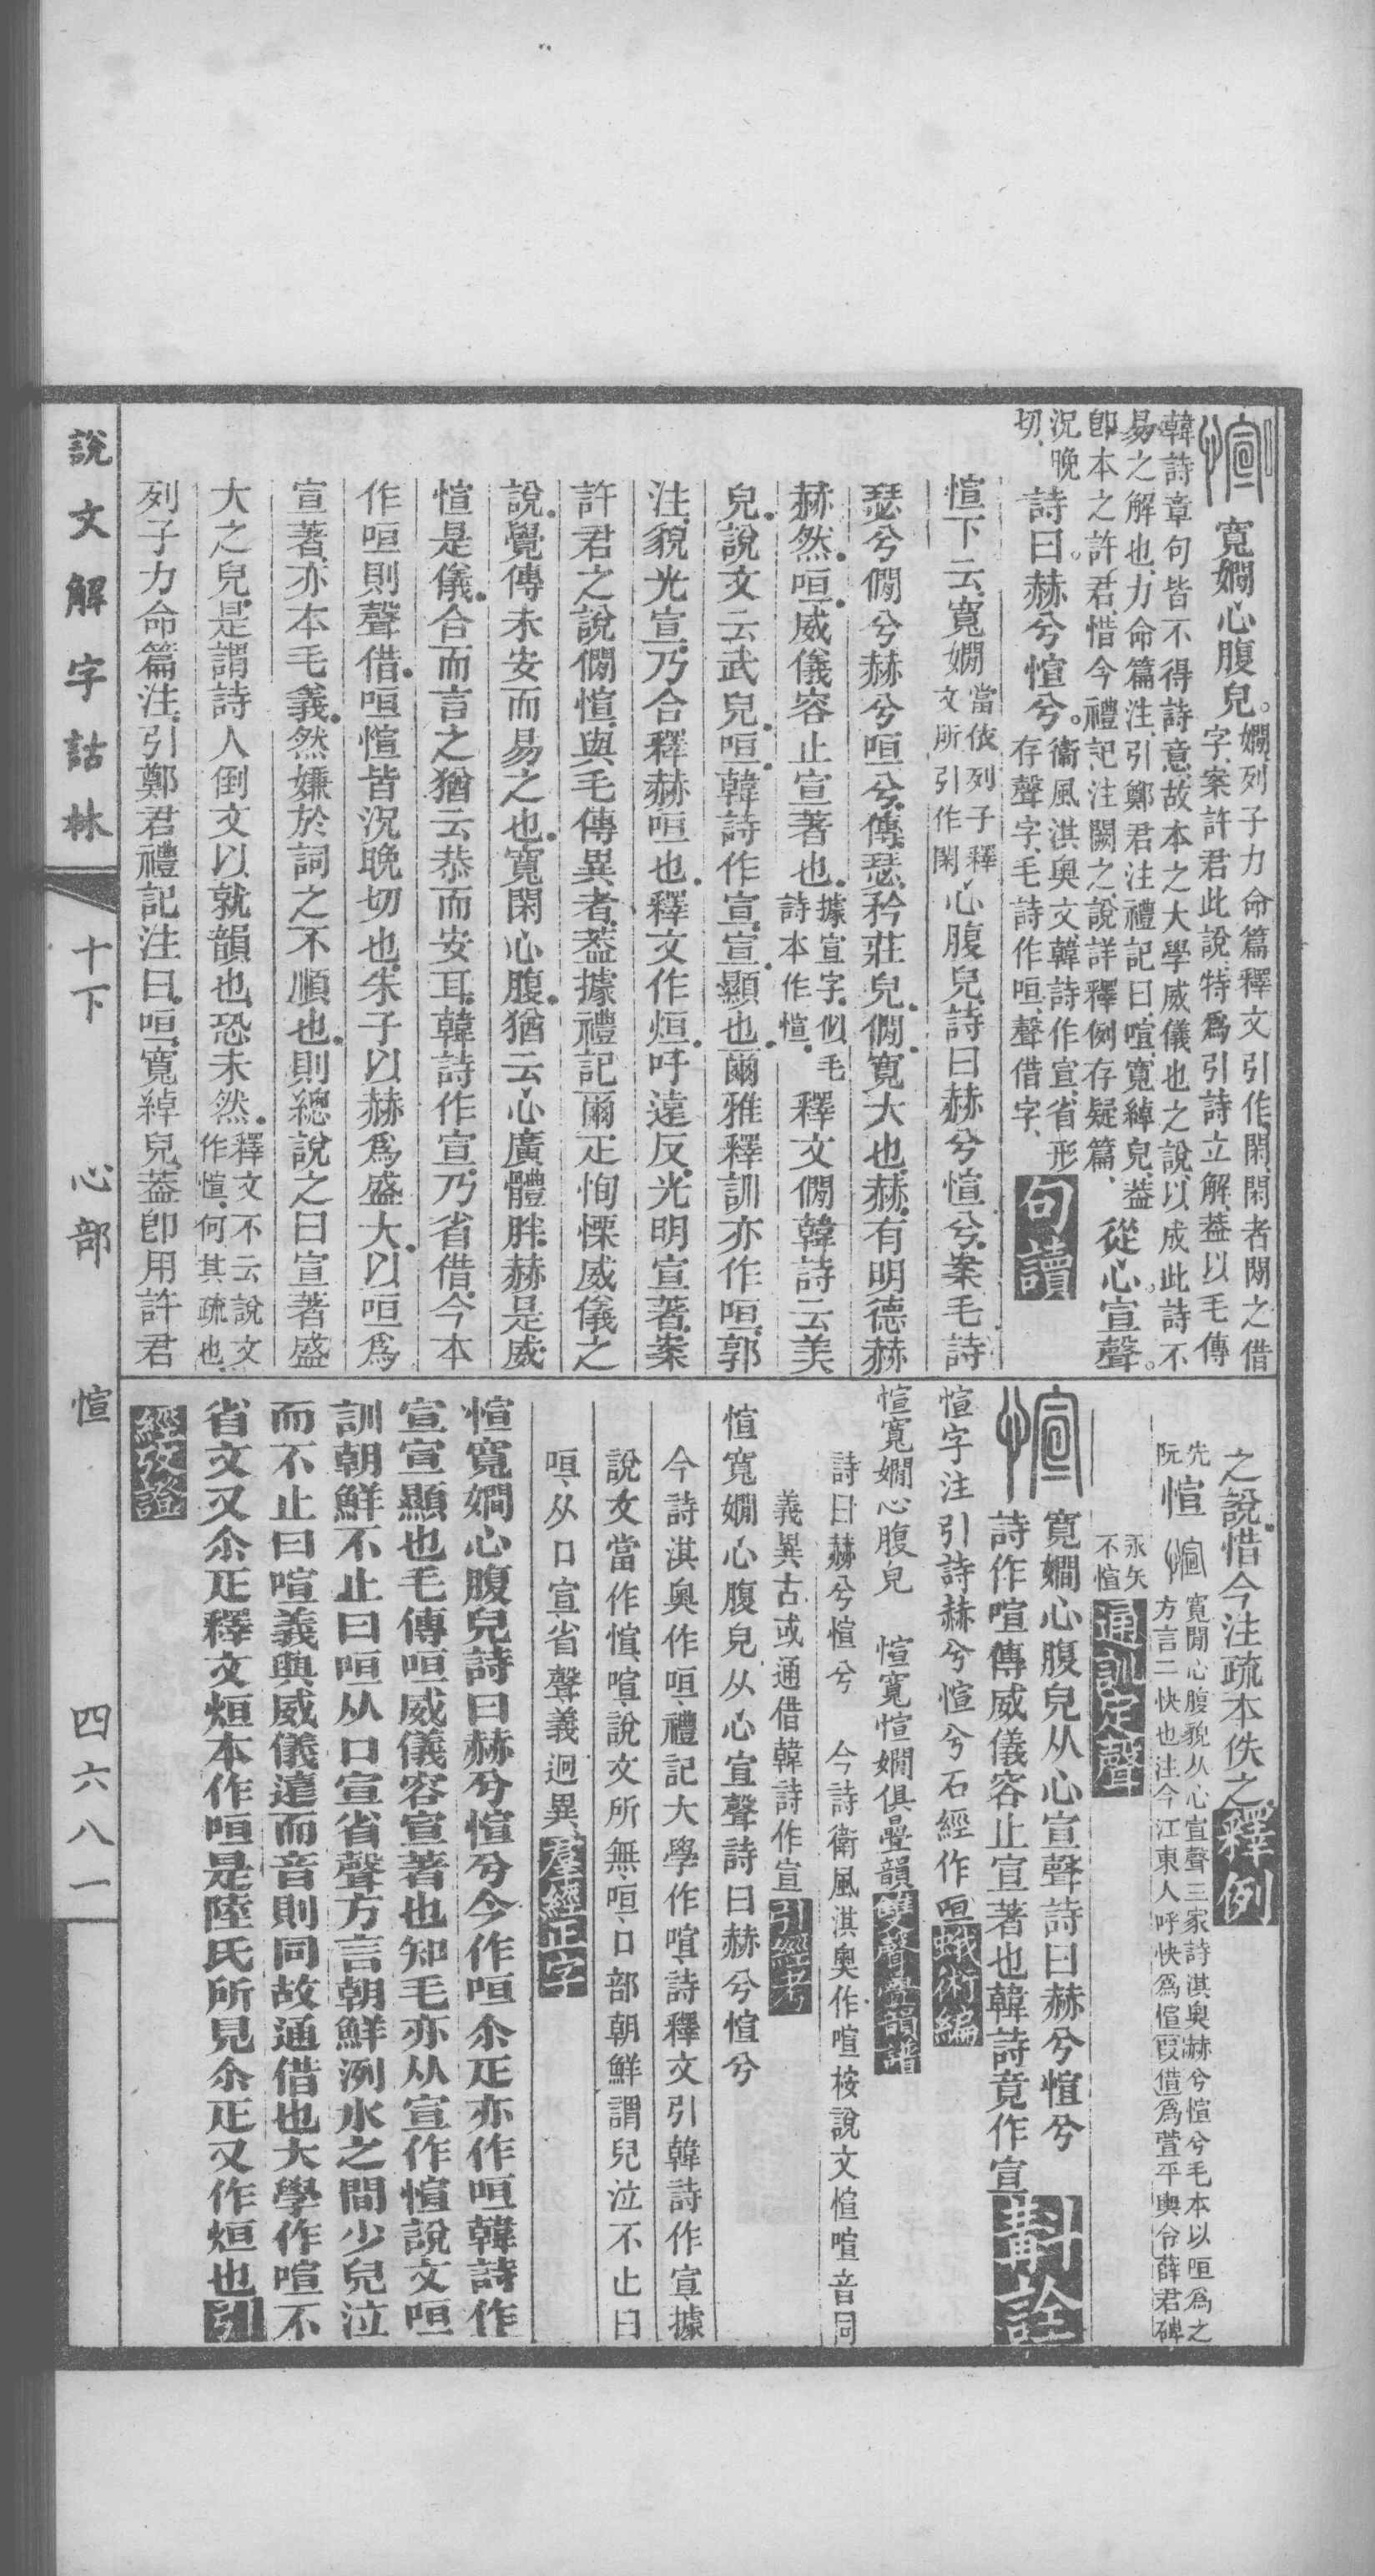 寬嫺心腹皃。嫺、列子力命篇釋文引作閑、閑者閒之借
字、案許君此說特爲引詩立解、葢以毛傳
韓詩章句皆不得詩意、故本之大學威儀也之說、以成此詩不
易之解也、力命篇注、引鄭君注禮記曰、喧、寬綽皃、葢
卽本之許君、惜今禮記注闕之、說詳釋例存疑篇、從心宣聲。
況晚切、詩曰。赫兮愃兮。衞風淇奧文、韓詩作宣、省形
存聲字、毛詩作咺、聲借字、句讀
愃下云、寬嫺當依列子釋文所引作閑心腹皃、詩曰赫兮愃兮、案毛詩
瑟兮僩兮赫兮咺兮、傳、瑟、矜莊皃、僩、寬大也、赫、有明德赫
赫然、咺、威儀容止宣著也、據宣字、似毛詩本作愃、釋文僩韓詩云美
皃、說文云武皃、咺、韓詩作宣、宣、顯也、爾雅釋訓亦作咺、郭
注、貌光宣、乃合釋赫咺也、釋文作烜、吁遠反、光明宣著、案
許君之說僩愃、與毛傳異者、葢據禮記爾疋恂慄威儀之
說、覺傳未安而易之也、寬閑心腹、猶云心廣體胖、赫是威、
愃是儀、合而言之、猶云恭而安耳、韓詩作宣、乃省借、今本
作咺、則聲借、咺愃皆況晚切也、朱子以赫爲盛大、以咺爲
宣著、亦本毛義、然嫌於詞之不順也、則總說之曰宣著盛
大之皃、是謂詩人倒文以就韻也、恐未然、釋文不云說文作愃、何其疏也、
列子力命篇注、引鄭君禮記注曰、咺、寬綽皃、葢卽用許君
之說、惜今注疏本佚之、釋例
先阮愃寬閒心腹貌从心宣聲三家詩淇奧赫兮愃兮毛本以咺爲之
方言二快也注今江東人呼快爲愃叚借爲萱平輿令薛君碑
永矢不愃通訓定聲
寬嫺心腹皃从心宣聲詩曰赫兮愃兮
詩作喧傳威儀容止宣著也韓詩竟作宣斠詮
愃字注引詩赫兮愃兮石經作咺蛾術編
愃寬嫺心腹皃　愃寬愃嫺俱疊韻雙聲疊韻譜
詩曰赫兮愃兮　今詩衛風淇奧作喧桉說文愃喧音同
義異古或通借韓詩作宣引經考
愃寬嫺心腹皃从心宣聲詩曰赫兮愃兮
今詩淇奧作咺、禮記大學作喧、詩釋文引韓詩作宣、據
說文當作愃、喧、說文所無、咺、口部朝鮮謂兒泣不止曰
咺、从口宣省聲、義迥異、羣經正字
愃寬嫺心腹皃詩曰赫兮愃兮今作咺尒疋亦作咺韓詩作
宣宣顯也毛傳咺威儀容宣著也知毛亦从宣作愃說文咺
訓朝鮮不止曰咺从口宣省聲方言朝鮮洌水之間少兒泣
而不止曰喧義與威儀遠而音則同故通借也大學作喧不
省文又尒疋釋文烜本作咺是陸氏所見尒疋又作烜也引
經攷證
說文解字詁林　十下　心部　愃　四六八一